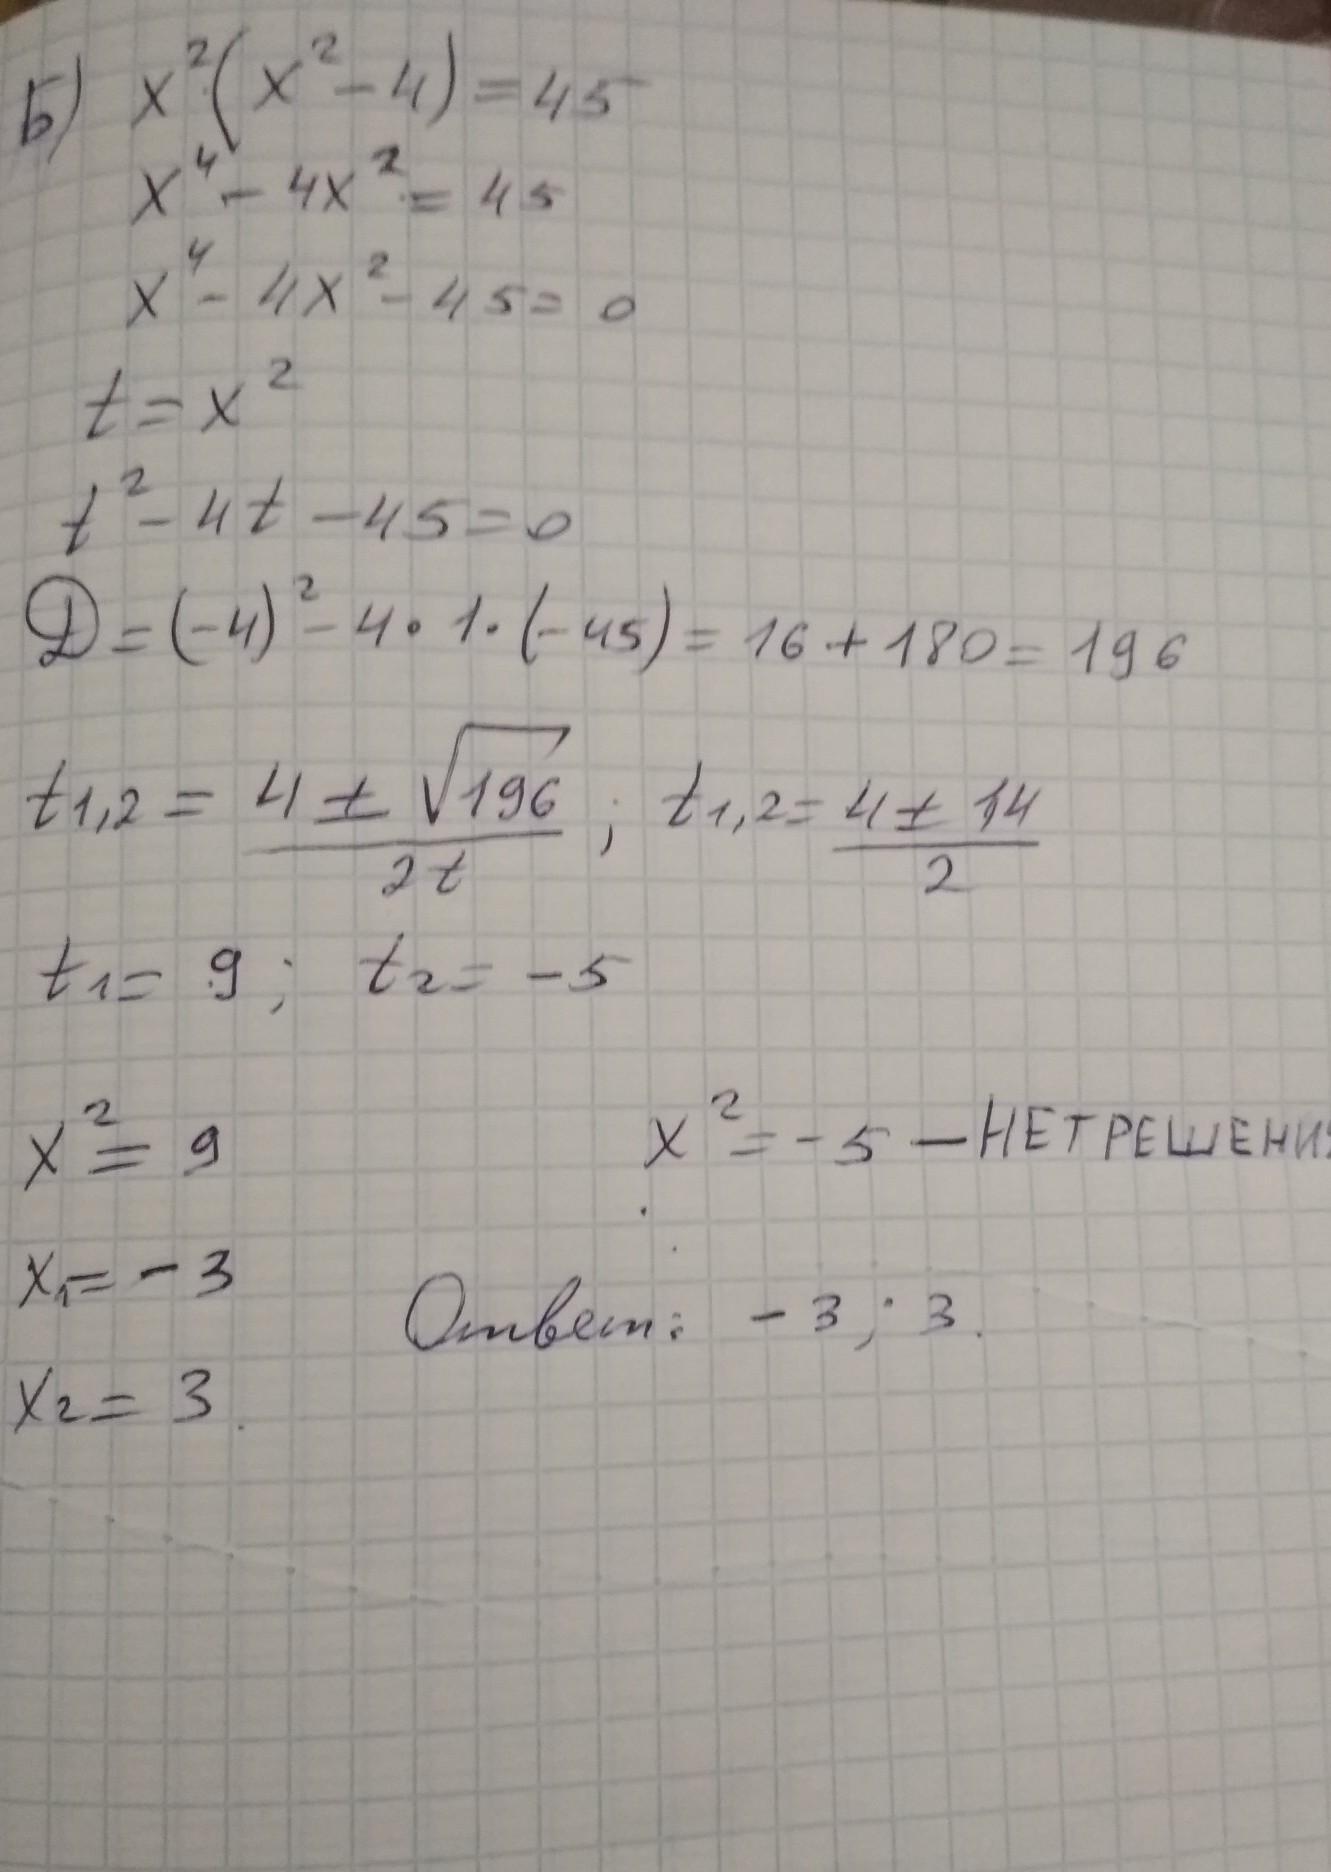 Б) x²(x² - 4) = 45
x⁴ - 4x² = 45
x⁴ - 4x² - 45 = 0
t = x²
t² - 4t - 45 = 0
D = (-4)² - 4 · 1 · (-45) = 16 + 180 = 196
t1,2 = (4 ± √196)/(2t) ; t1,2 = (4 ± 14)/2
t1 = 9 ; t2 = -5
x² = 9 x² = -5 — НЕТ РЕШЕНИЯ
x1 = -3
Ответ: -3 ; 3.
x2 = 3.